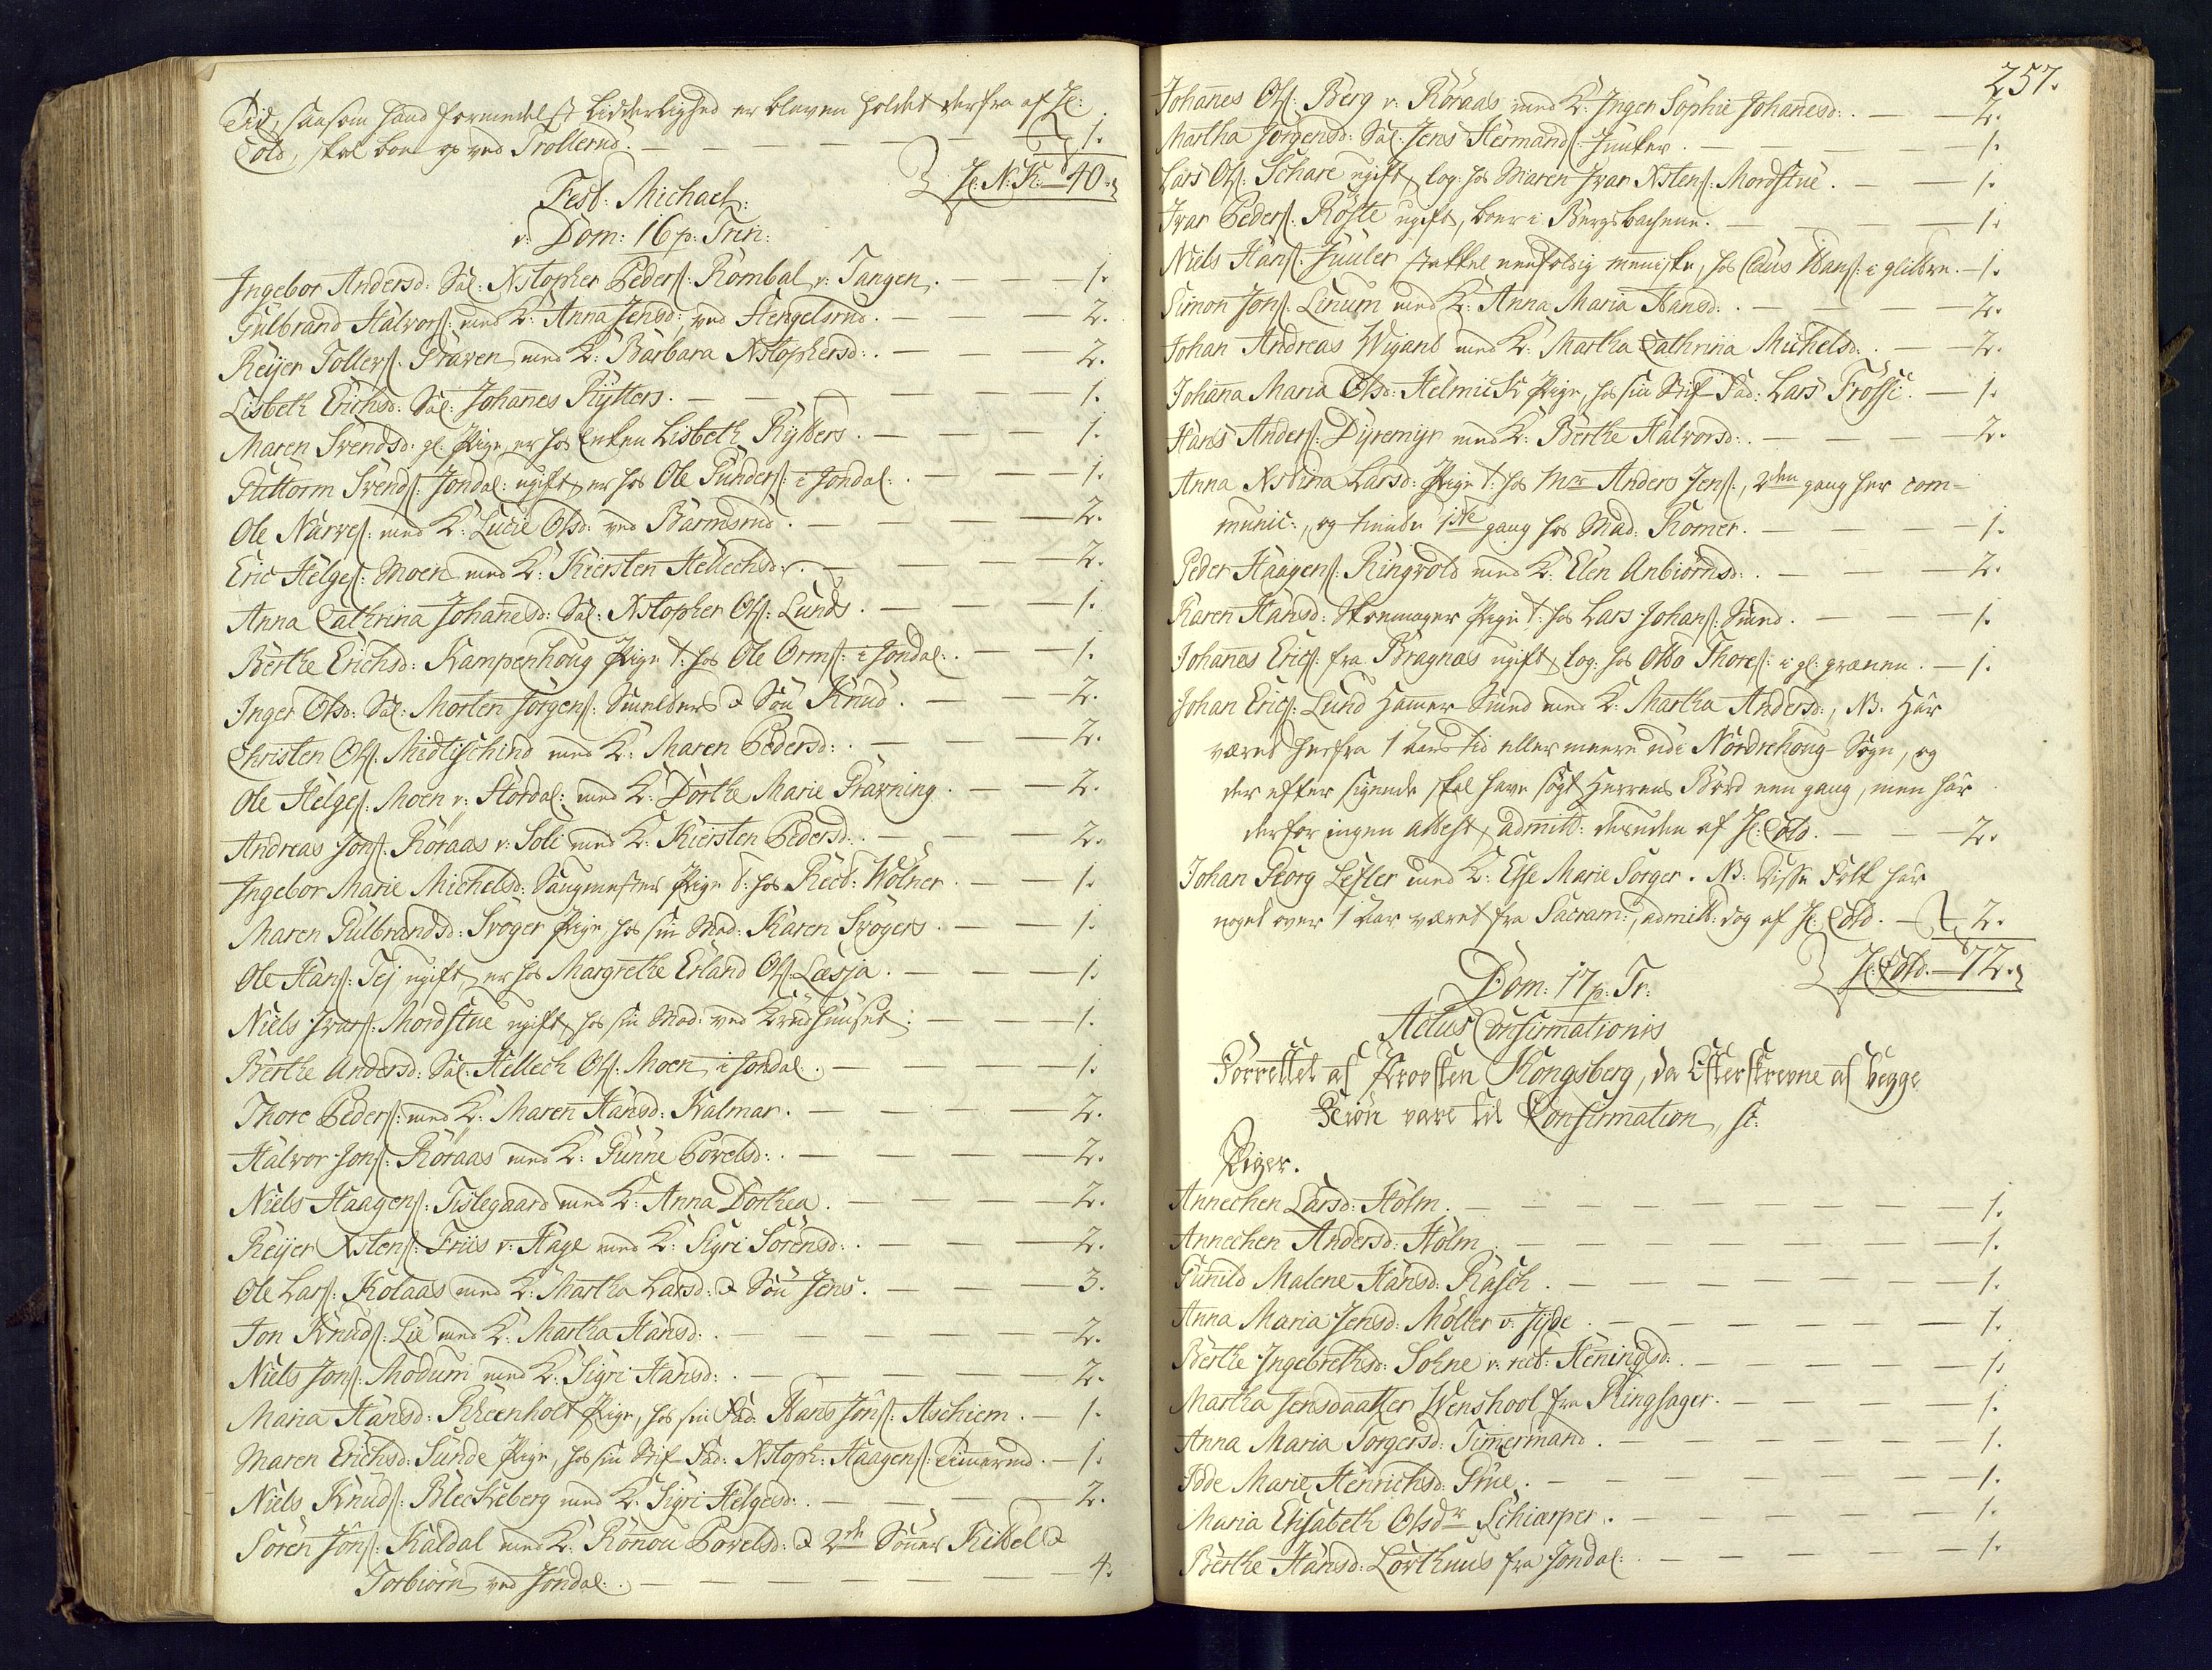 Tid, saasom hand formedelst Liderlighed er bleven holdet derfra af H:
Cold, skal boe op ved Trollerud. — 1.
H: N: K: — 40.
Fest: Michael:
v: Dom: 16 p: Trin:
Ingebor Andersd: Sal: Xstopher Peders: Rombal v: Tangen. — 1.
Gulbrand Halvors: med K: Anna Jensd: ved Hengelsrud. — 2.
Reijer Tollers: Graven med K: Barbara Xstophersd: — 2.
Lisbeth Erichsd: Sal: Johannes Rytters. — 1.
Maren Svendsd: gl: Pige, er hos Enken Lisbeth Rytters. — 1.
Guttorm Svends: Jondal: ugift, er hos Ole Gunders: i Jondal: — 1.
Ole Narves: med K: Lucie Olsd: ved Barmsrud. — 2.
Eric Helges: Moen med K: Kiersten Hellechsd: — 2.
Anna Cathrina Johanesd: Sal: Xstopher Ols: Lunds. — 1.
Berthe Erichsd: Kampenhoug Pige t: hos Ole Orms: i Jondal: — 1.
Inger Olsd: Sal: Morten Jorgens: Smelders & Søn Knud. — 2.
Christen Ols: Midtischind med K: Maren Pedersd: — 2.
Ole Helges: Moen v: Stordal: med K: Dorthe Marie Gravning. — 2.
Andreas Jons: Röraas v: Soli med K: Kiersten Pedersd: — 2.
Ingebor Marie Michelsd: Saugmester Pige t: hos Rect: Wolner. — 1.
Maren Gulbrandsd: Svoger Pige hos sin Mod: Karen Svogers. — 1.
Ole Hans: Tej ugift, er hos Margrethe Erland Ols: Læsja. — 1.
Niels Ivars: Mordstue ugift, hos sin Mod: ved Krudhuuset: — 1.
Berthe Andersd: Sal: Hellech Ols: Moen i Jondal: — 1.
Thore Peders: med K: Maren Hansd: Kalmar. — 2.
Halvor Jons: Röraas med K: Gunne Povelsd: — 2.
Niels Haagens: Tislegaard med K: Anna Dorthea. — 2.
Reijer Xstens: Friis v: Hage med K: Sigri Sörensd: — 2.
Ole Lars: Kolaas med K: Martha Larsd: & Søn Jens. — 3.
Jon Knuds: Lie med K: Martha Hansd: — 2.
Niels Jons: Modum med K: Sigri Hansd: — 2.
Maria Hansd: Rheenholt Pige, hos sin Fad: Hans Jons: Aschiem. — 1.
Maren Erichsd: Sunde Pige, hos sin Stif-Fad: Xstoph: Haagens: — 1.
Niels Knuds: Bleckeberg med K: Sigri Helgesd: — 2.
Sören Jons: Kaldal med K: Ronou Povelsd: & 2de Sønner Kittel &
Torbiørn ved Jondal: — 4.
257.
Johanes Ols: Berg v: Röraas med K: Inger Sophie Johanesd: — 2.
Martha Jörgensd: Sal: Jens Hermands: Junker. — 1.
Lars Ols: Schare ugift, log: hos Maren Ivar Xstens: Mordstue. — 1.
Ivar Peders: Röste ugift, boer i Bergsbachene. — 1.
Niels Hans: Juuler stakkel eenfoldig menniske, hos Claus Hans: i glitre. — 1.
Simon Jons: Linum med K: Anna Maria Hansd: — 2.
Johan Andreas Wigand med K: Martha Cathrina Michelsd: — 2.
Johanna Maria Olsd: Helmich Pige, hos sin Stif-Fad: Lars Frossi: — 1.
Hans Anders: Dyremyr med K: Berthe Halvorsd: — 2.
Anna Xstina Larsd: Pige t: hos Mr Anders Jens:, 2den gang her com-
munic:, og hendes 1ste gang hos Mad: Romer. — 1.
Peder Haagens: Ringvold med K: Elen Anbiörnsd: — 2.
Karen Hansd: Skomager Pige t: hos Lars Johans: Smed. — 1.
Johanes Erics: fra Bragnas ugift, log: hos Otto Thores: i gl: — 1.
Johan Erics: Lund Hamer Smed med K: Martha Andersd:, NB. Har
været herfra 1 Aars tid eller meere udi Nordrehoug Sogn, og
der efter sigende skal have søgt Herrens Bord een gang, men har
derfor ingen Attest, admitt: desuden af H: Cold. — 2.
Johan Georg Lesler med K: Else Marie Sorger. NB: disse Folk har
noget over 1 Aar været fra Sacram:, admitt: dog af H: Cold. — 2.
H: Cold. — 72.
Dom: 17 p: Tr:
Actus Confirmationis
Forrettet af Provsten Kongsberg, da Efterskrevne af begge
Kiøn vare til Confirmation, sc:
Piger.
Annechen Larsd: Holm. — 1.
Annechen Andersd: Holm — 1.
Gunild Malene Hansd: Rasch. — 1.
Anna Maria Jensd: Möller v: Jyde. — 1.
Berthe Ingebrethsd: Sohne v: rect: Heningsd: — 1.
Martha Jensdaatter Wenshool fra Ringsager. — 1.
Anna Maria Torgersd: Timermand. — 1.
Ide Marie Henrichsd: Grue. — 1.
Maria Elisabeth Olsdr Schiærper. — 1.
Berthe Hansd: Lorthuus fra Jondal: — 1.